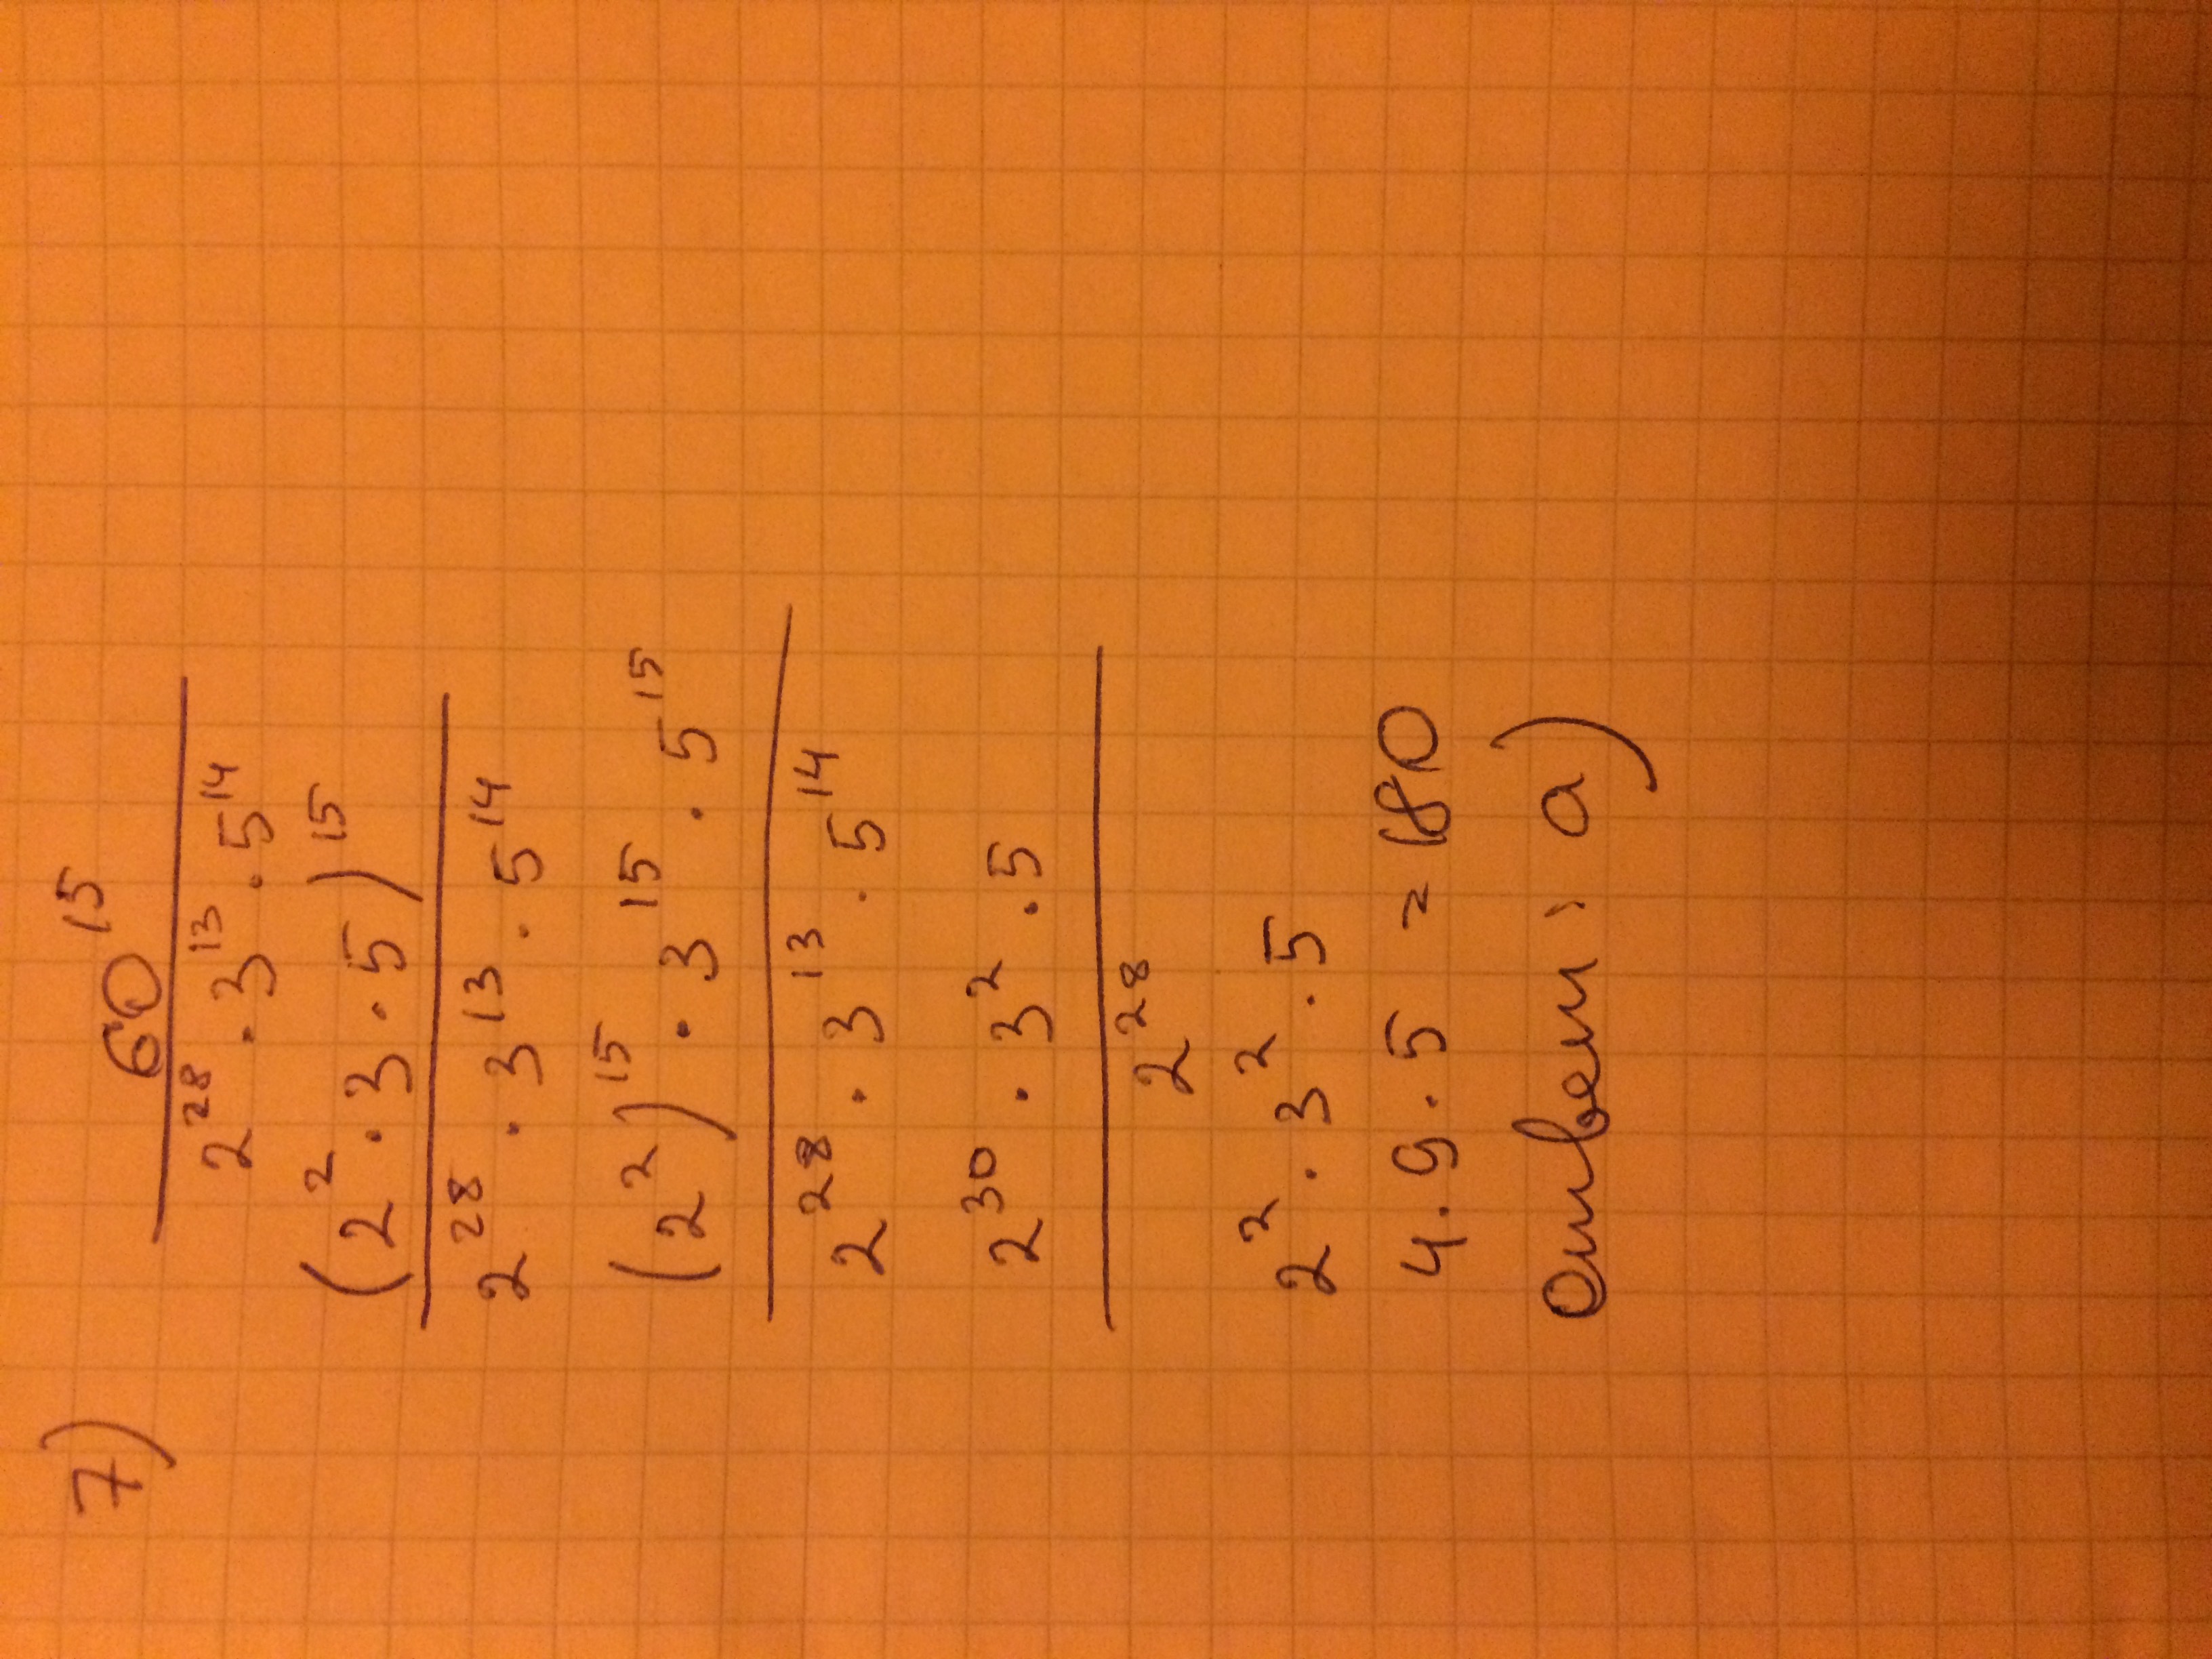 7)
60¹⁵
2²⁸ · 3¹³ · 5¹⁴
(2² · 3 · 5)¹⁵
2²⁸ · 3¹³ · 5¹⁴
(2²)¹⁵ · 3¹⁵ · 5¹⁵
2²⁸ · 3¹³ · 5¹⁴
2³⁰ · 3² · 5
2²⁸
2² · 3² · 5
4 · 9 · 5 = 180
Ответ: а)